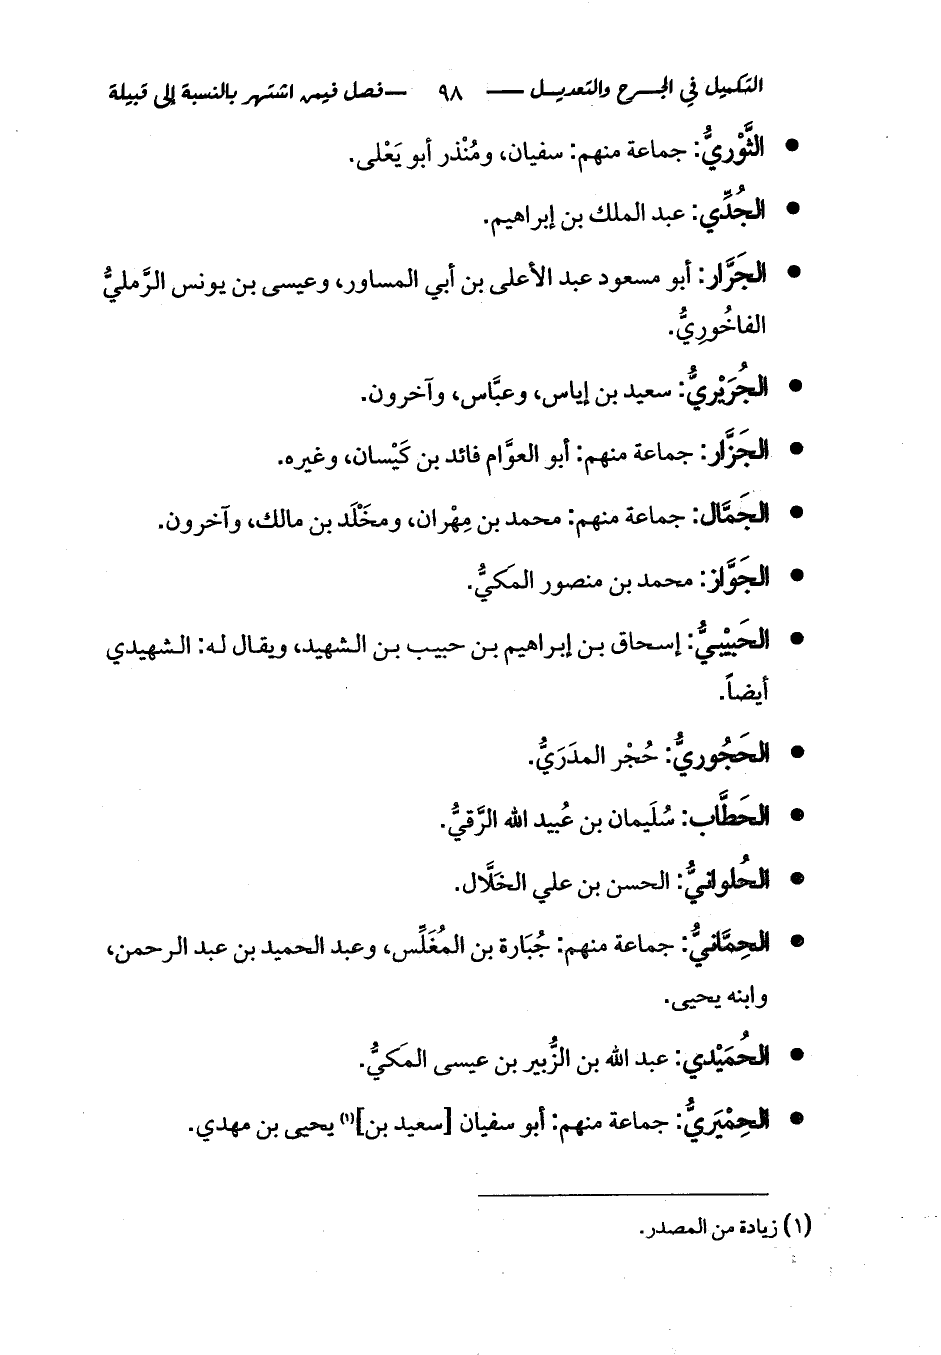 التكميل في الجرح والتعديل — ٩٨ — فصل فيمن اشتهر بالنسبة إلى قبيلة
• الثَّوْريُّ: جماعة منهم: سفيان، ومُنْذر أبو يَعْلى.
• الجُدِّي: عبد الملك بن إبراهيم.
• الجَرَّار: أبو مسعود عبد الأعلى بن أبي المساور، وعيسى بن يونس الرَّمليُّ
الفاخُورِيُّ.
• الجُرَيْريُّ: سعيد بن إياس، وعبَّاس، وآخرون.
• الجَزَّار: جماعة منهم: أبو العوَّام فائد بن كَيْسان، وغيره.
• الجَمَّال: جماعة منهم: محمد بن مِهْران، ومخْلَد بن مالك، وآخرون.
• الجَوَّاز: محمد بن منصور المَكيُّ.
• الحَبِيْبيُّ: إسحاق بن إبراهيم بن حبيب بن الشهيد، ويقال له: الشهيدي
أيضاً.
• الحَجُوريُّ: حُجْر المدَرَيُّ.
• الحَطَّاب: سُلَيمان بن عُبيد الله الرَّقيُّ.
• الحُلوانيُّ: الحسن بن علي الخَلَّال.
• الحِمَّانيُّ: جماعة منهم: جُبَارة بن المُغَلِّس، وعبد الحميد بن عبد الرحمن،
وابنه يحيى.
• الحُمَيْدي: عبد الله بن الزُّبير بن عيسى المَكيُّ.
• الحِمْيَريُّ: جماعة منهم: أبو سفيان [سعيد بن](١) يحيى بن مهدي.
(١) زيادة من المصدر.